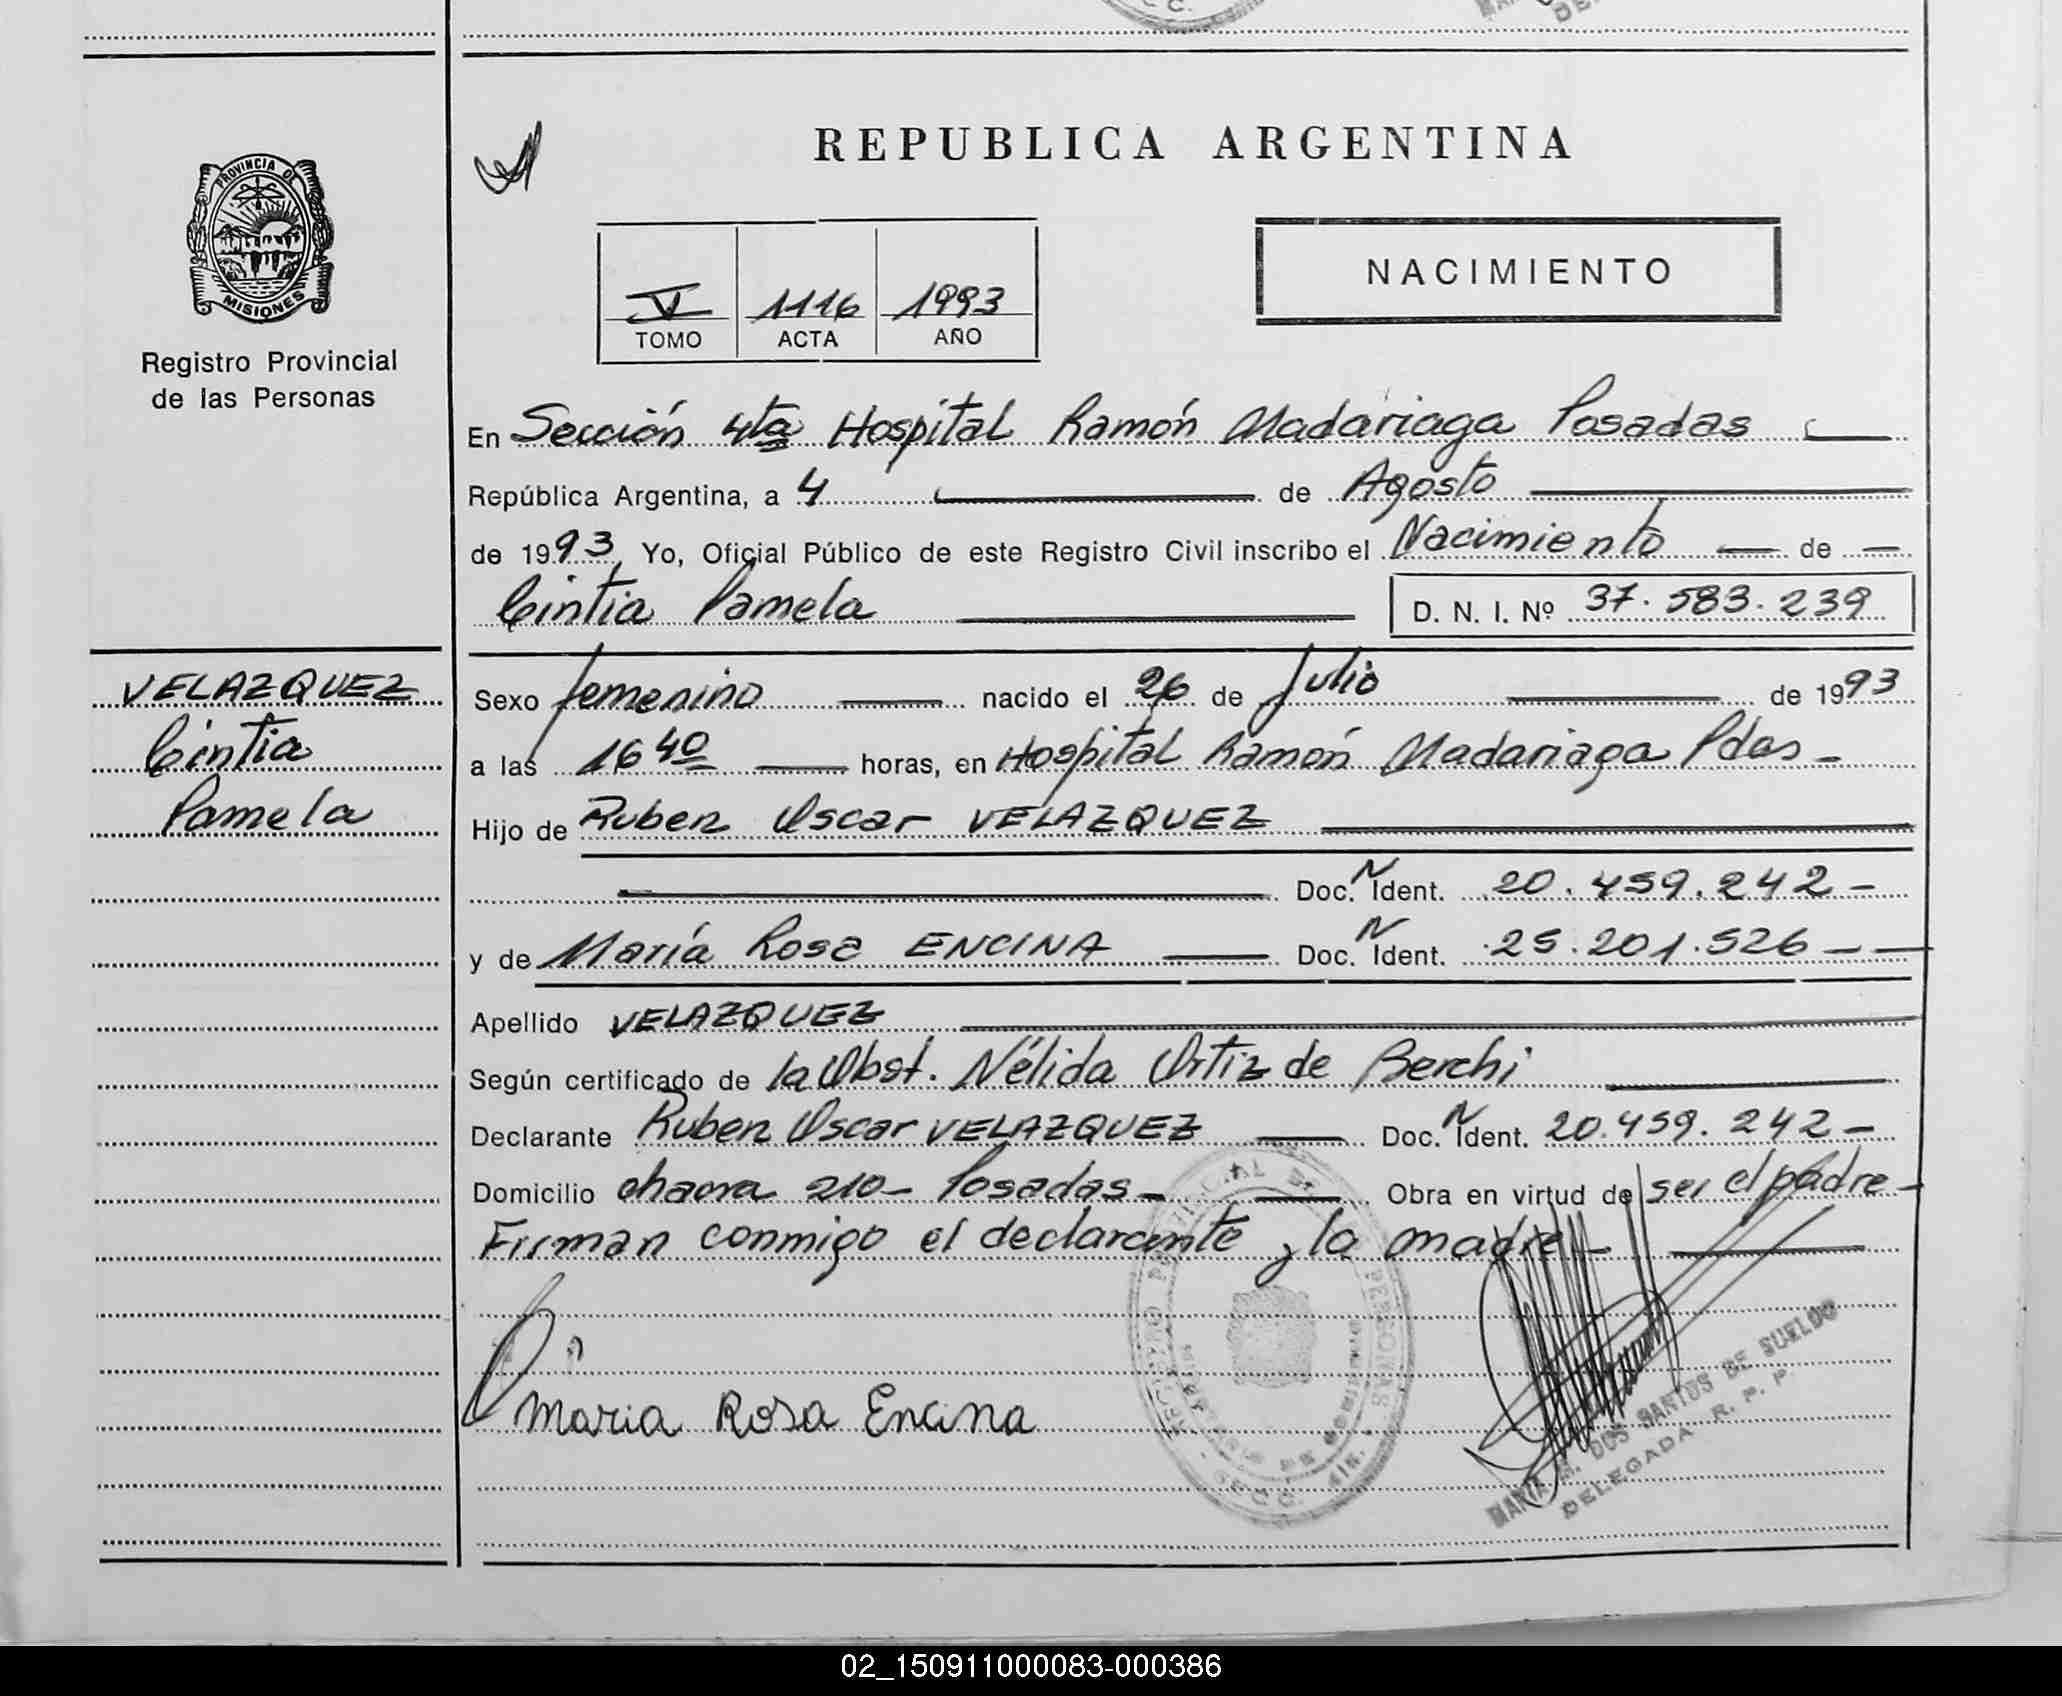 REPUBLICA ARGENTINA
PROVINCIA DE
MISIONES
Registro Provincial
de las Personas
NACIMIENTO
V 1116 1993
TOMO ACTA AÑO
En Sección 4ta Hospital Ramón Madariaga Posadas
República Argentina, a 4 de Agosto
de 1993, Yo, Oficial Público de este Registro Civil inscribo el Nacimiento — de —
Cintia Pamela D. N. I. Nº 37.583.239
VELAZQUEZ
Cintia
Pamela
Sexo femenino nacido el 26 de Julio de 1993
a las 16 40 horas, en Hospital Ramón Madariaga Pdas -
Hijo de Ruben Oscar VELAZQUEZ
Doc. N Ident. 20.459.242 -
y de María Rosa ENCINA Doc. N Ident. 25.201.526 -
Apellido VELAZQUEZ
Según certificado de la Obst. Nélida Ortiz de Berchi
Declarante Ruben Oscar VELAZQUEZ Doc. N Ident. 20.459.242 -
Domicilio chacra 210 - Posadas - Obra en virtud de ser el padre -
Firman conmigo el declarante y la madre -
Maria Rosa Encina
SECC. 4ta.
MARIA M. DOS SANTOS DE SUELDO
DELEGADA R. P. P.
02_150911000083-000386